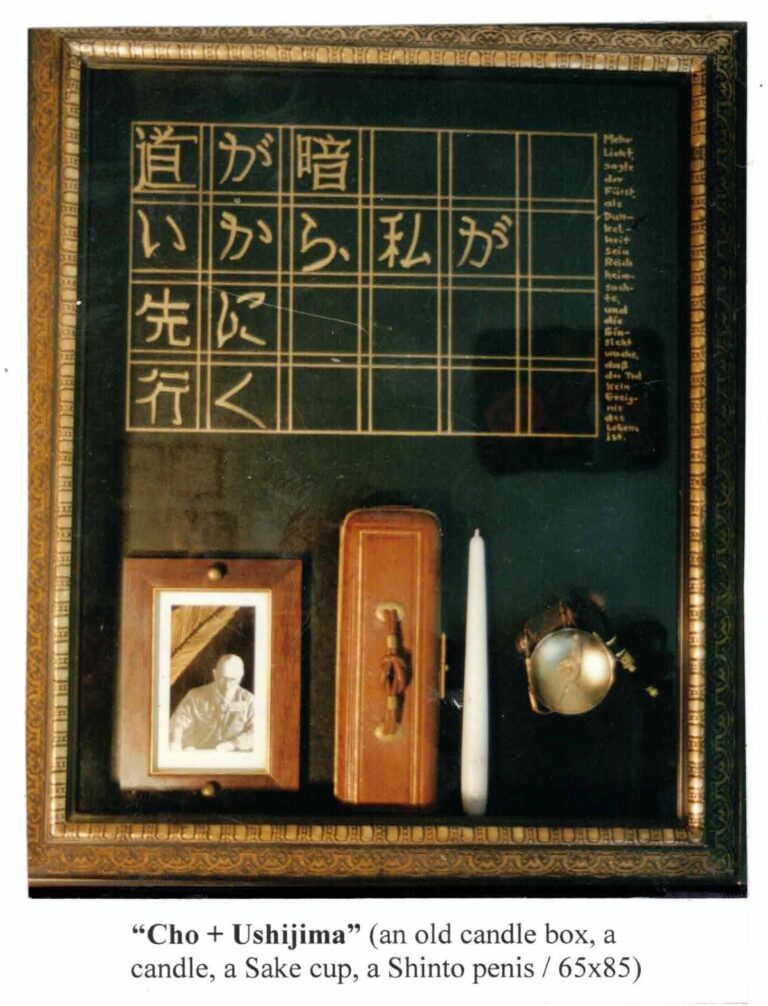 道が暗
いから、私が
先に
行く
Mehr
Licht,
sagte
der
Fürst,
als
Dun-
kel-
heit
sein
Reich
heim-
such-
te,
und
die
Ein-
sicht
wuchs,
daß
der Tod
kein
Ereig-
nis
des
Lebens
ist.
“Cho + Ushijima” (an old candle box, a
candle, a Sake cup, a Shinto penis / 65x85)